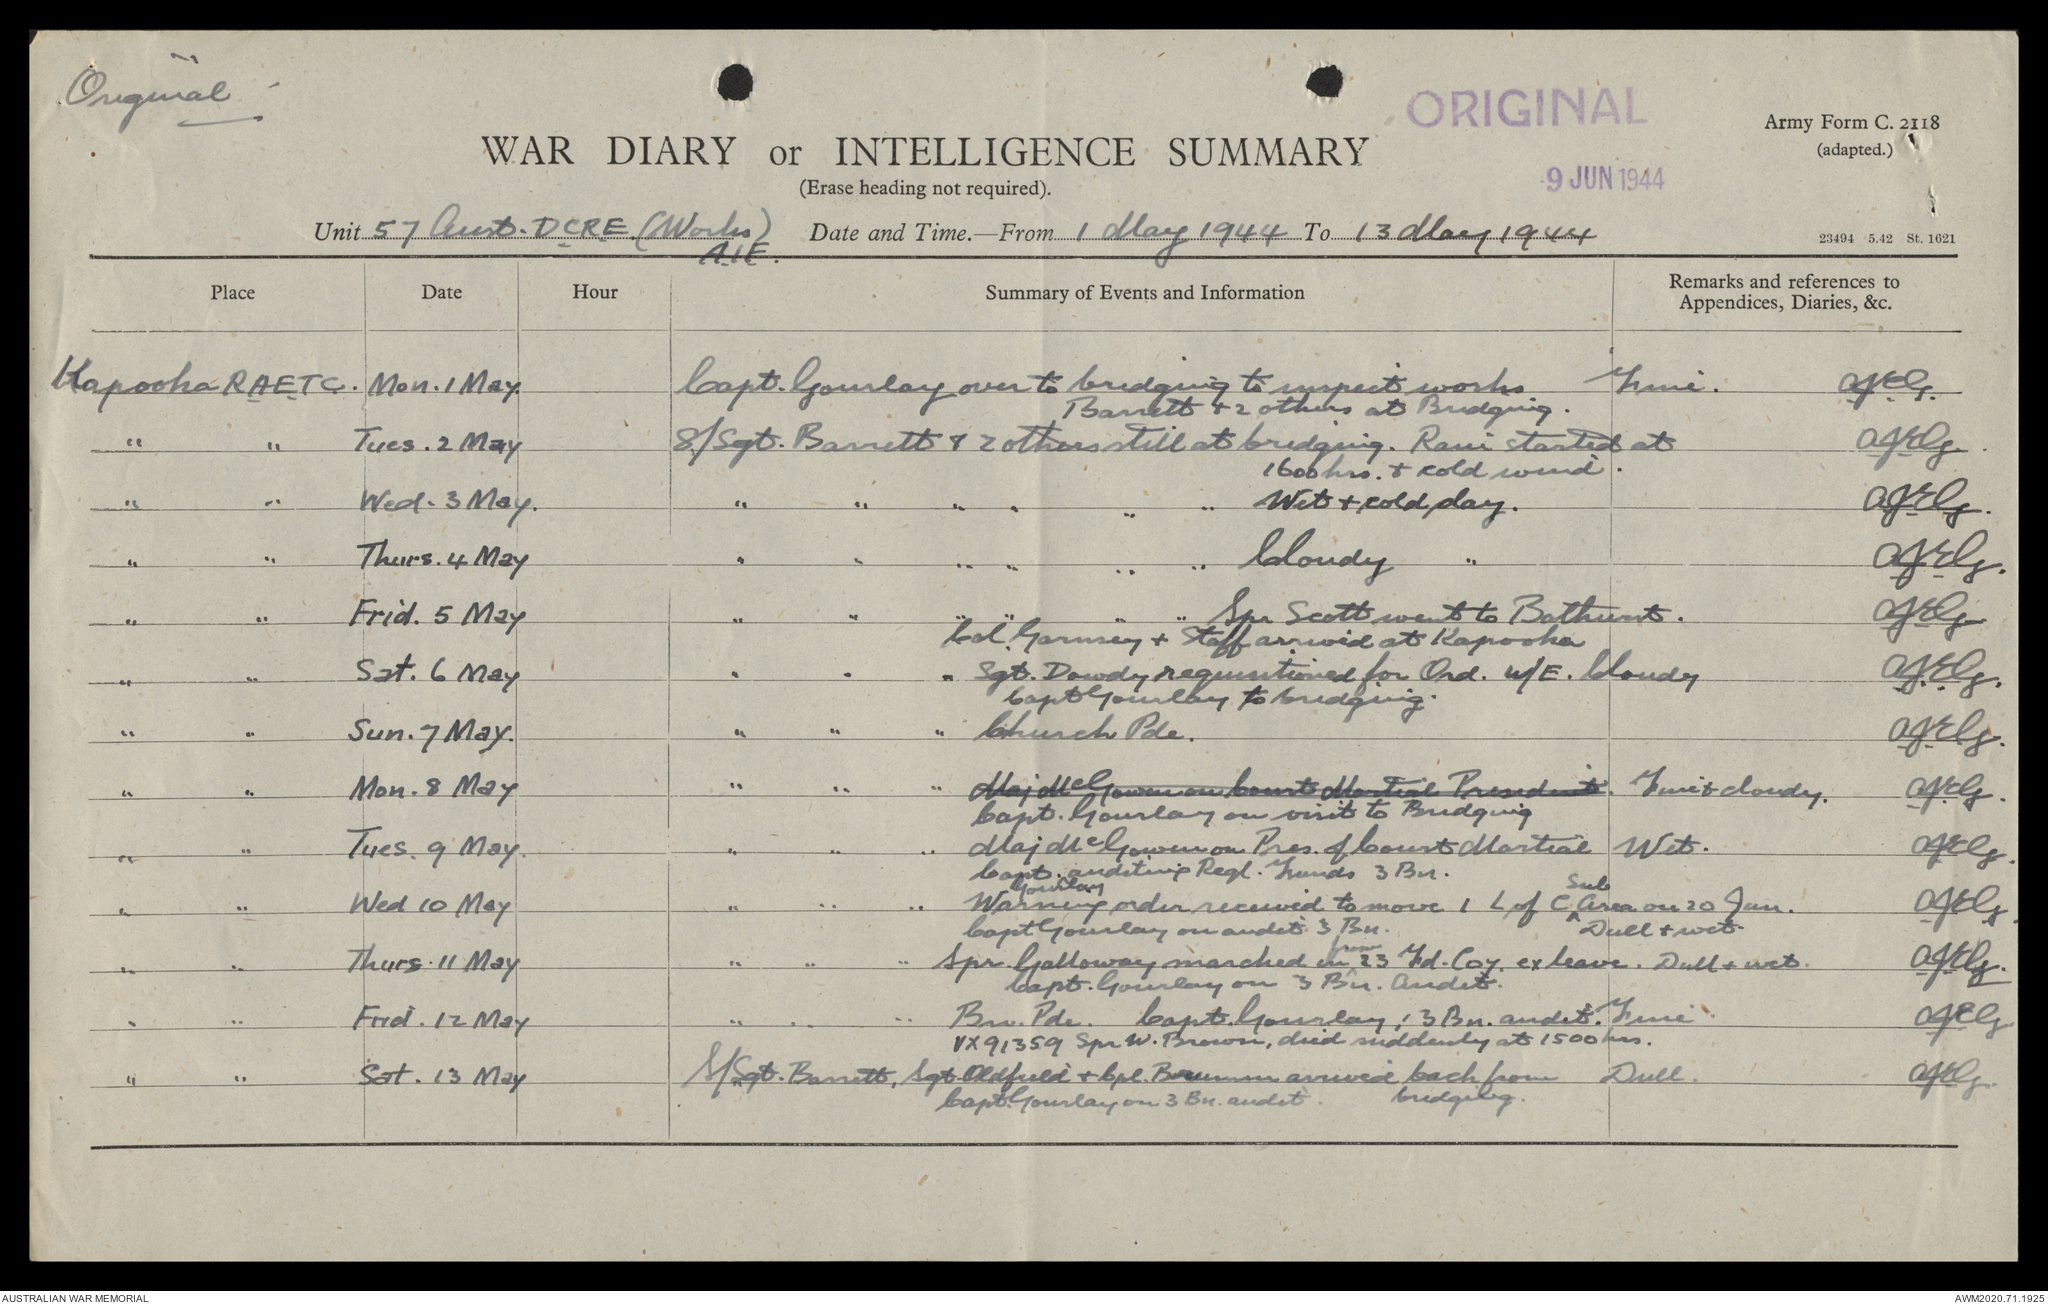 Original
ORIGINAL
Army Form C. 2118
(adapted.)
WAR DIARY or INTELLIGENCE SUMMARY
(Erase heading not required).
9 JUN 1944
Unit 57 Aust. DCRE (Works) A.I.F. Date and Time.—From 1 May 1944 To 13 May 1944
23494 5.42 St. 1621
Place Date Hour Summary of Events and Information Remarks and references to Appendices, Diaries, &c.
Kapooka RAETC. Mon. 1 May. Capt. Gourlay over to bridging to inspect works Fine.
Barrett + 2 others at Bridging.
" " Tues. 2 May S/Sgt. Barrett & 2 others still at bridging. Rain started at
1600 hrs. + cold wind.
" " Wed. 3 May. " " " " " " Wet + cold day.
" " Thurs. 4 May " " " " " " Cloudy "
" " Frid. 5 May " " " " " " Spr Scott went to Bathurst.
Col. Garnsey + Staff arrived at Kapooka
" " Sat. 6 May " " " Sgt. Dowdy requisitioned for Ord. W/E. Cloudy
Capt Gourlay to bridging.
" " Sun. 7 May. " " " Church Pde.
" " Mon. 8 May " " " Maj McGowen on Court Martial President. Fine & cloudy.
Capt. Gourlay on visit to Bridging
" " Tues. 9 May. " " " Maj McGowen on Pres. of Court Martial Wet.
Capt. Gourlay auditing Regl. Funds 3 Bn.
" " Wed 10 May " " " Warning order received to move 1 L of C Sub Area on 20 Jun.
Capt Gourlay on audit 3 Bn. Dull + wet
" " Thurs. 11 May " " " Spr. Galloway marched in from 23 Fd. Coy. ex leave. Dull + wet.
Capt. Gourlay on 3 Bn. Audit.
" " Frid. 12 May " " " Bn. Pde. Capt. Gourlay, 3 Bn. audit. Fine
VX91359 Spr W. Brown, died suddenly at 1500 hrs.
" " Sat. 13 May S/Sgt. Barrett, Sgt. Oldfield + Cpl. arrived back from Dull.
Capt. Gourlay on 3 Bn. audit. bridging.
AUSTRALIAN WAR MEMORIAL
AWM2020.71.1925